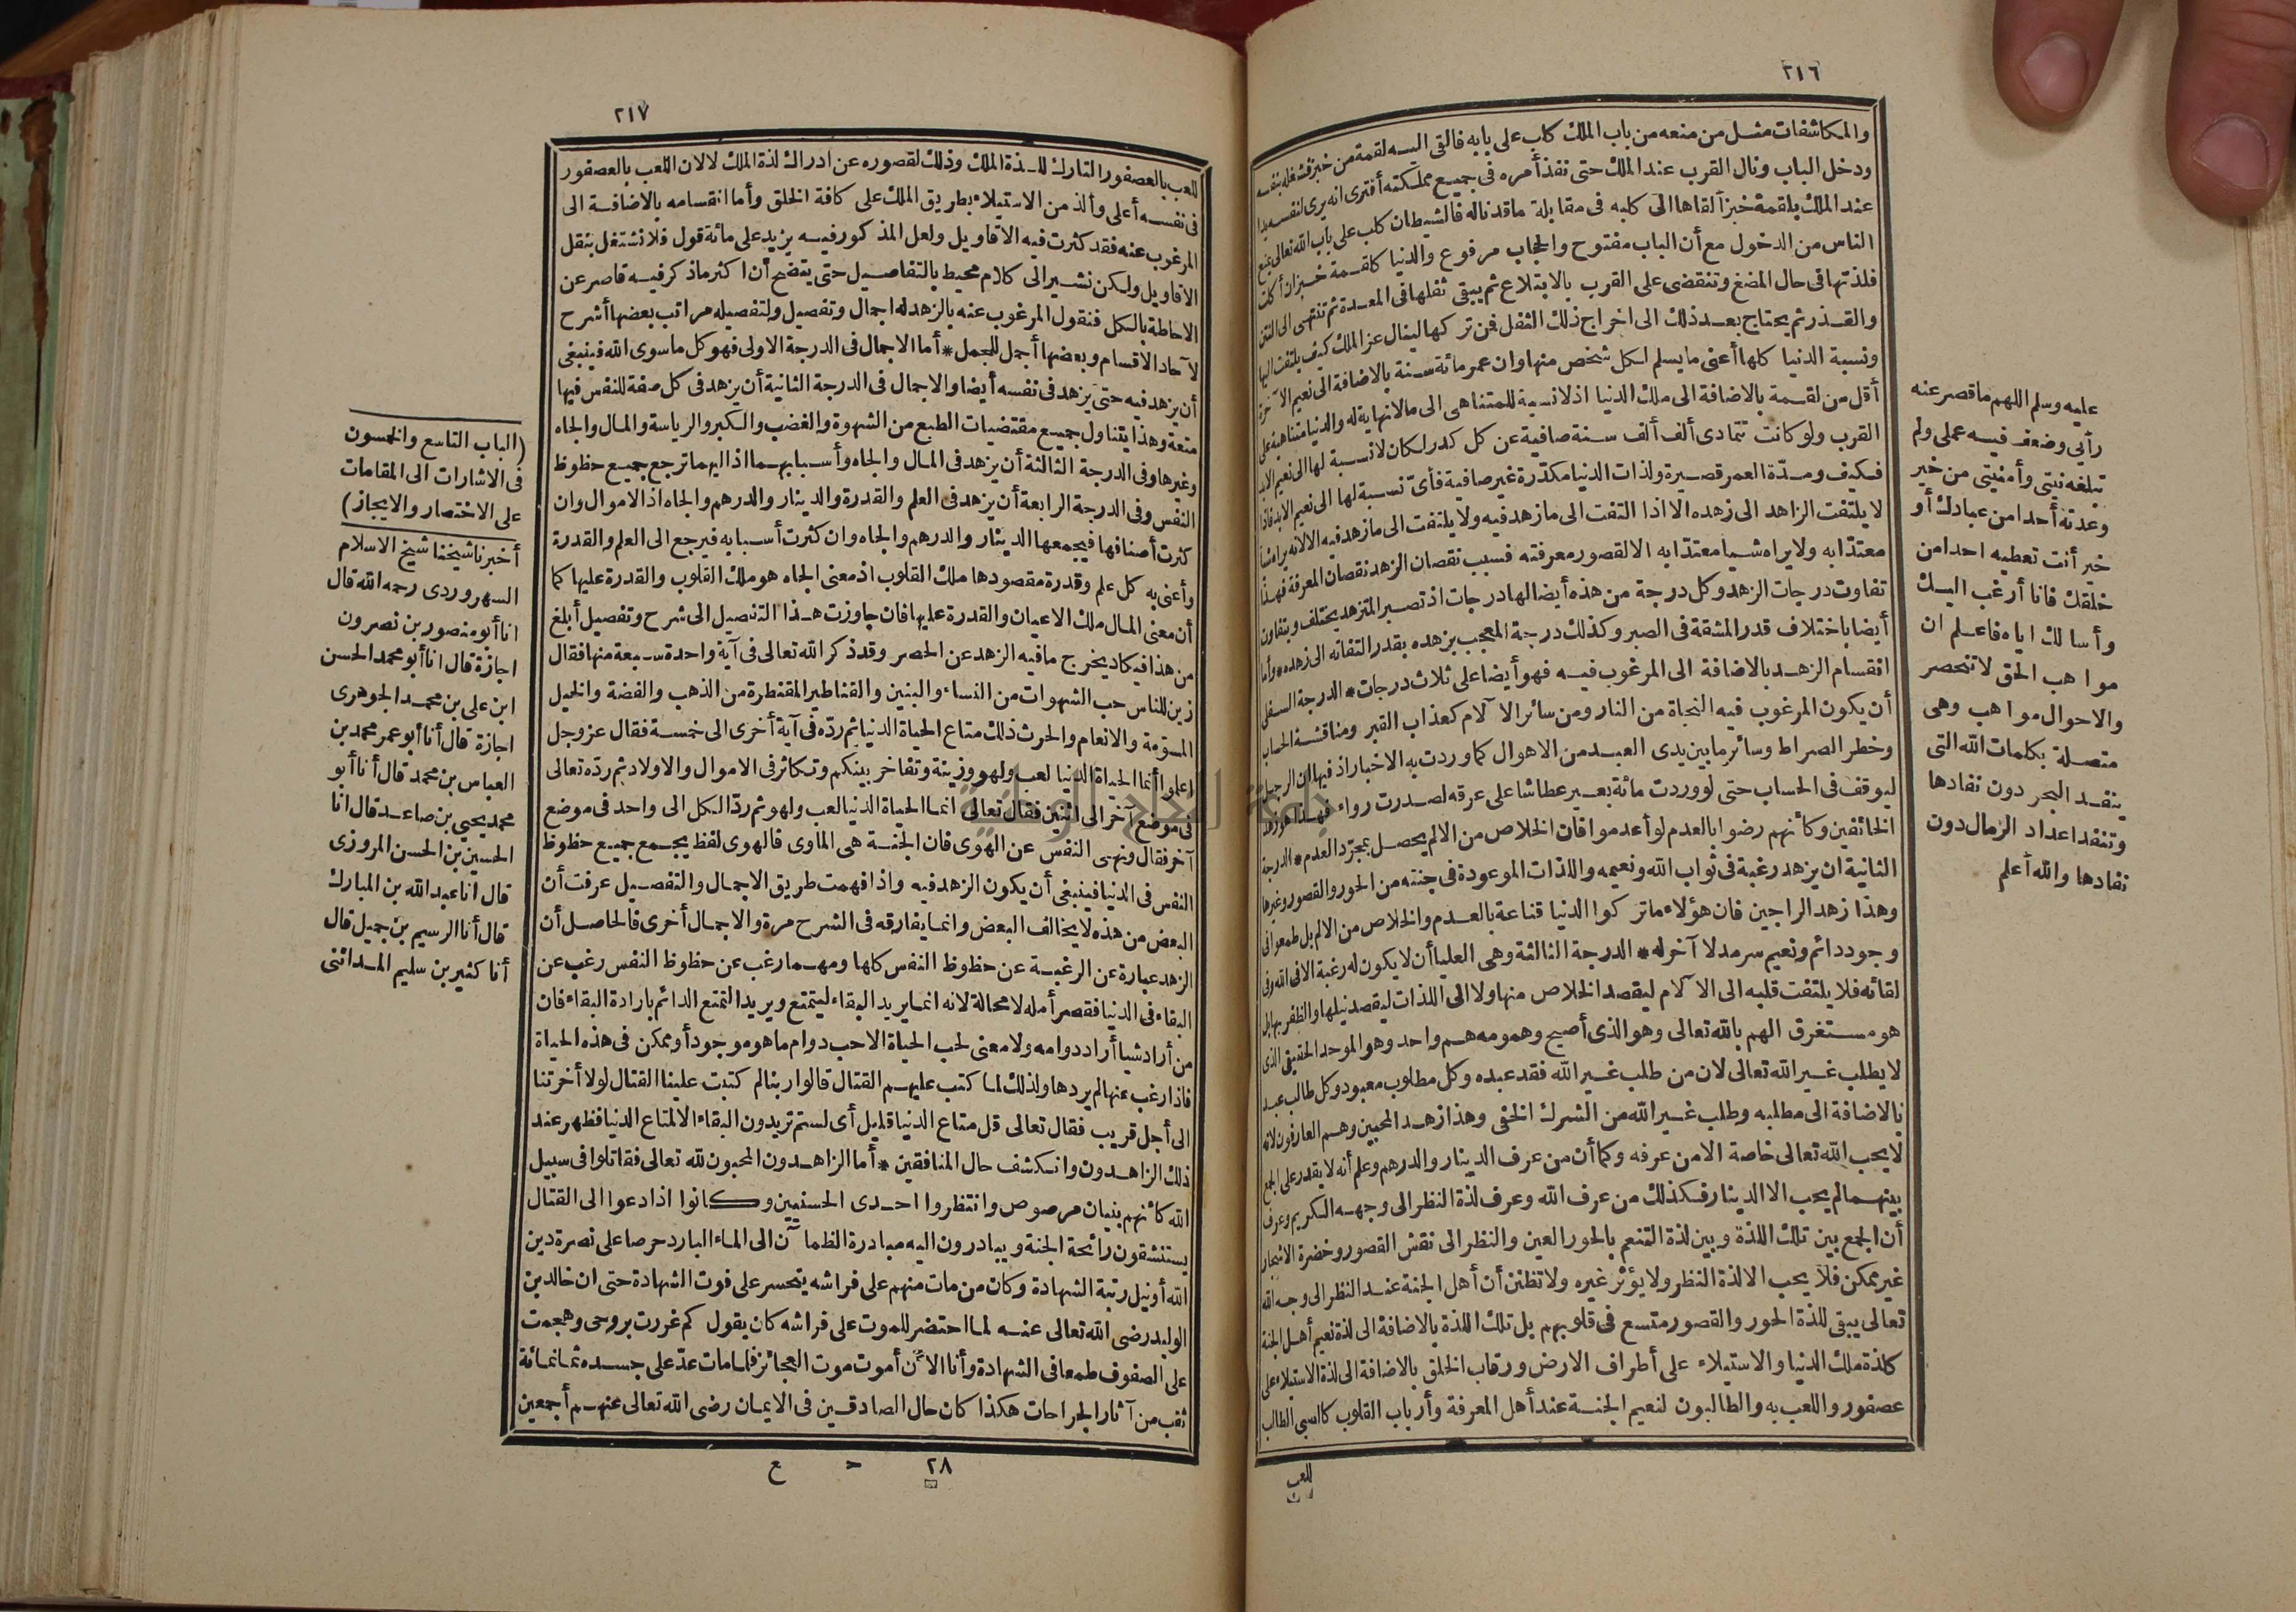 ٢١٦
والمكاشفات مثل من منعه من باب الملك كلب على بابه فالقى اليه لقمة من خبز فشغله بنفسه
ودخل الباب ونال القرب عند الملك حتى نفذ أمره فى جميع مملكته أفترى انه يرى لنفسه يدا
عند الملك بلقمة خبز ألقاها الى كلبه فى مقابلة ما قد ناله فالشيطان كلب على باب الله تعالى يمنع
الناس من الدخول مع أن الباب مفتوح والحجاب مرفوع والدنيا كلقمة خبز ان أكلت
فلذتها فى حال المضغ وتنقضى على القرب بالابتلاع ثم يبقى ثفلها فى المعدة ثم تنتهى الى النتن
والقذر ثم يحتاج بعد ذلك الى اخراج ذلك الثفل فمن تركها لينال عز الملك كيف يلتفت اليها
ونسبة الدنيا كلها أعنى ما يسلم لكل شخص منها وان عمر مائة سنة بالاضافة الى نعيم الآخرة
أقل من لقمة بالاضافة الى ملك الدنيا اذ لا نسبة للمتناهى الى ما لا نهاية له والدنيا متناهية على
القرب ولو كانت تتمادى ألف ألف سنة صافية عن كل كدر لكان لا نسبة لها الى نعيم الابد
فكيف ومدّة العمر قصيرة ولذات الدنيا مكدّرة غير صافية فأىّ نسبة لها الى نعيم الابد فاذا
لا يلتفت الزاهد الى زهده الا اذا التفت الى ما زهد فيه ولا يلتفت الى ما زهد فيه الا لانه يراه شيأ
معتدّا به ولا يراه شيأ معتدّا به الا لقصور معرفته فسبب نقصان الزهد نقصان المعرفة فهذا
تفاوت درجات الزهد وكل درجة من هذه أيضا لها درجات اذ تصبر المتزهد يختلف ويتفاوت
أيضا باختلاف قدر المشقة فى الصبر وكذلك درجة المعجب بزهده بقدر التفاته الى زهده * وأما
انقسام الزهد بالاضافة الى المرغوب فيه فهو أيضا على ثلاث درجات * الدرجة السفلى
أن يكون المرغوب فيه النجاة من النار ومن سائر الآلام كعذاب القبر ومناقشة الحساب
وخطر الصراط وسائر ما بين يدى العبد من الاهوال كما وردت به الاخبار اذ فيها ان الرجل
ليوقف فى الحساب حتى لو وردت مائة بعير عطاشا على عرقه لصدرت رواء فهذا هو زهد
الخائفين وكأنهم رضوا بالعدم لو أعدموا فان الخلاص من الالم يحصل بمجرّد العدم * الدرجة
الثانية ان يزهد رغبة فى ثواب الله ونعيمه واللذات الموعودة فى جنته من الحور والقصور وغيرها
وهذا زهد الراجين فان هؤلاء ما تركوا الدنيا قناعة بالعدم والخلاص من الالم بل طمعوا فى
وجود دائم ونعيم سرمد لا آخر له * الدرجة الثالثة وهى العليا أن لا يكون له رغبة الا فى الله وفى
لقائه فلا يلتفت قلبه الى الآلام ليقصد الخلاص منها ولا الى اللذات ليقصد نيلها والظفر بها بل
هو مستغرق الهم بالله تعالى وهو الذى أصبح وهمومه هم واحد وهو الموحد الحقيقى الذى
لا يطلب غير الله تعالى لان من طلب غير الله فقد عبده وكل مطلوب معبود وكل طالب عبد
بالاضافة الى مطلبه وطلب غير الله من الشرك الخفى وهذا زهد المحبين وهم العارفون لانه
لا يحب الله تعالى خاصة الا من عرفه وكما أن من عرف الدينار والدرهم وعلم أنه لا يقدر على الجمع
بينهما لم يحب الا الدينار فكذلك من عرف الله وعرف لذة النظر الى وجهه الكريم وعرف
أن الجمع بين تلك اللذة وبين لذة التنعم بالحور العين والنظر الى نقش القصور وخضرة الاشجار
غير ممكن فلا يحب الا لذة النظر ولا يؤثر غيره ولا تظنن أن أهل الجنة عند النظر الى وجه الله
تعالى يبقى للذة الحور والقصور متسع فى قلوبهم بل تلك اللذة بالاضافة الى لذة نعيم أهل الجنة
كلذة ملك الدنيا والاستيلاء على أطراف الارض ورقاب الخلق بالاضافة الى لذة الاستيلاء على
عصفور واللعب به والطالبون لنعيم الجنة عند أهل المعرفة وأرباب القلوب كالصبى الطالب
للعب
عليه وسلم اللهم ما قصر عنه
رأيى وضعف فيه عملى ولم
تبلغه نيتى وأمنيتى من خير
وعدته أحدا من عبادك أو
خير أنت تعطيه احدا من
خلقك فانا أرغب اليك
وأسالك اياه فاعلم ان
مواهب الحق لا تنحصر
والاحوال مواهب وهى
متصلة بكلمات الله التى
ينفد البحر دون نفادها
وتنفد اعداد الرمال دون
نفادها والله أعلم
٢١٧
للعب بالعصفور التارك للذة الملك وذلك لقصوره عن ادراك لذة الملك لا لان اللعب بالعصفور
فى نفسه أعلى وألذ من الاستيلاء بطريق الملك على كافة الخلق وأما انقسامه بالاضافة الى
المرغوب عنه فقد كثرت فيه الاقاويل ولعل المذكور فيه يزيد على مائة قول فلا نشتغل بنقل
الاقاويل ولكن نشير الى كلام محيط بالتفاصيل حتى يتضح أن اكثر ما ذكر فيه قاصر عن
الاحاطة بالكل فنقول المرغوب عنه بالزهد له اجمال وتفصيل ولتفصيله مراتب بعضها أشرح
لآحاد الاقسام وبعضها أجمل للجمل * أما الاجمال فى الدرجة الاولى فهو كل ما سوى الله فينبغى
أن يزهد فيه حتى يزهد فى نفسه أيضا والاجمال فى الدرجة الثانية أن يزهد فى كل صفة للنفس فيها
متعة وهذا يتناول جميع مقتضيات الطبع من الشهوة والغضب والكبر والرياسة والمال والجاه
وغيرها وفى الدرجة الثالثة أن يزهد فى المال والجاه وأسبابهما اذ اليهما ترجع جميع حظوظ
النفس وفى الدرجة الرابعة أن يزهد فى العلم والقدرة والدينار والدرهم والجاه اذ الاموال وان
كثرت أصنافها فيجمعها الدينار والدرهم والجاه وان كثرت أسبابه فيرجع الى العلم والقدرة
وأعنى به كل علم وقدرة مقصودها ملك القلوب اذ معنى الجاه هو ملك القلوب والقدرة عليها كما
أن معنى المال ملك الاعيان والقدرة عليها فان جاوزت هذا التفصيل الى شرح وتفصيل أبلغ
من هذا فيكاد يخرج ما فيه الزهد عن الحصر وقد ذكر الله تعالى فى آية واحدة سبعة منها فقال
زين للناس حب الشهوات من النساء والبنين والقناطير المقنطرة من الذهب والفضة والخيل
المسوّمة والانعام والحرث ذلك متاع الحياة الدنيا ثم ردّه فى آية أخرى الى خمسة فقال عز وجل
اعلموا أنما الحياة الدنيا لعب ولهو وزينة وتفاخر بينكم وتكاثر فى الاموال والاولاد ثم ردّه تعالى
فى موضع آخر الى اثنين فقال تعالى انما الحياة الدنيا لعب ولهو ثم ردّ الكل الى واحد فى موضع
آخر فقال ونهى النفس عن الهوى فان الجنة هى المأوى فالهوى لفظ يجمع جميع حظوظ
النفس فى الدنيا فينبغى أن يكون الزهد فيه واذا فهمت طريق الاجمال والتفصيل عرفت أن
البعض من هذه لا يخالف البعض وانما يفارقه فى الشرح مرة والاجمال أخرى فالحاصل أن
الزهد عبارة عن الرغبة عن حظوظ النفس كلها ومهما رغب عن حظوظ النفس رغب عن
البقاء فى الدنيا فقصر أمله لا محالة لانه انما يريد البقاء ليتمتع ويريد التمتع الدائم بارادة البقاء فان
من أراد شيأ أراد دوامه ولا معنى لحب الحياة الا حب دوام ما هو موجود أو ممكن فى هذه الحياة
فاذا رغب عنها لم يردها ولذلك لما كتب عليهم القتال قالوا ربنا لم كتبت علينا القتال لولا أخرتنا
الى أجل قريب فقال تعالى قل متاع الدنيا قليل أى لستم تريدون البقاء الا لمتاع الدنيا فظهر عند
ذلك الزاهدون وانكشف حال المنافقين * أما الزاهدون المحبون لله تعالى فقاتلوا فى سبيل
الله كأنهم بنيان مرصوص وانتظروا احدى الحسنيين وكانوا اذا دعوا الى القتال
يستنشقون رائحة الجنة ويبادرون اليه مبادرة الظمآن الى الماء البارد حرصا على نصرة دين
الله أو نيل رتبة الشهادة وكان من مات منهم على فراشه يتحسر على فوت الشهادة حتى ان خالد بن
الوليد رضى الله تعالى عنه لما احتضر للموت على فراشه كان يقول كم غررت بروحى وهجمت
على الصفوف طمعا فى الشهادة وأنا الآن أموت موت العجائز فلما مات عدّ على جسده ثمانمائة
ثقب من آثار الجراحات هكذا كان حال الصادقين فى الايمان رضى الله تعالى عنهم أجمعين
٢٨ ح ع
(الباب التاسع والخمسون
فى الاشارات الى المقامات
على الاختصار والايجاز)
أخبرنا شيخنا شيخ الاسلام
السهروردى رحمه الله قال
انا أبو منصور بن خيرون
اجازة قال انا أبو محمد الحسن
ابن على بن محمد الجوهرى
اجازة قال أنا أبو عمر محمد بن
العباس بن محمد قال أنا أبو
محمد يحيى بن صاعد قال انا
الحسين بن الحسن المروزى
قال انا عبد الله بن المبارك
قال أنا الرسيم بن جميل قال
أنا كثير بن سليم المدائنى